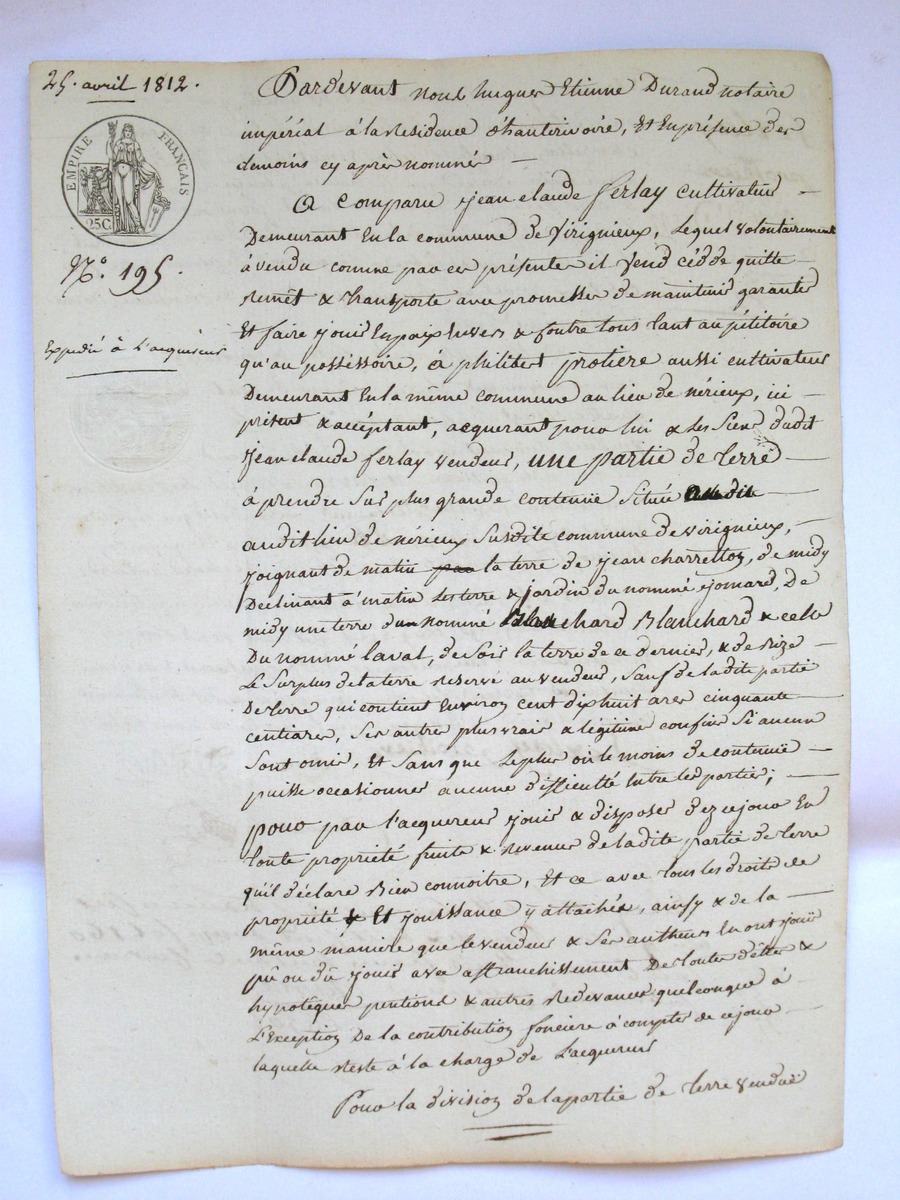 25. avril 1812.
EMPIRE FRANÇAIS
25C.
N.° 195.
Expedié à l'acquereur
Pardevant nous hugues Etienne Durand notaire
impérial à la residence d'hauterivoire, Et en présence des
temoins cy après nommés —
A comparu jean claude ferlay cultivateur —
Demeurant En la commune de Virignieux, Lequel volontairement
à vendu comme par ces présentes il vend cédde quitte
remêt & transporte avec promesses de maintenir garantir
Et faire jouir En paix Envers & contre tous tant au pétitoire
qu'au possessoire, à philibert protiere aussi cultivateur
Demeurant En la même commune au lieu de nérieux, ici —
présent & accéptant, acquerant pour lui & les siens dudit
jean claude ferlay vendeur, une partie de terre —
à prendre sur plus grande contenue située —
audit lieu de nérieux susdite commune de virignieux, —
joignant de matin la terre de jean charretton, de midy
Déclinant à matin les terre & jardin du nommé jomard, De
midy une terre du nommé Blanchard & celle
Du nommé laval, de soir la terre de ce dernier, & de bize —
Le surplus de la terre reservé au vendeur, sauf de ladite partie
De terre qui contient Environ cent dixhuit ares cinquante
centiares, ses autres plus vrais & légitimes confins si aucun
sont omis, Et sans que le plus où le moins de contenue —
puisse occasionner aucune difficulté Entre les parties; —
pour par l'acquereur jouir & disposer dez ce jour En
toute propriété fruits & revenus de ladite partie de terre
qu'il déclare Bien connoitre, Et ce avec tous les droits de
propriété Et jouissance y attachés, ainsy & de la —
même manière que le vendeur & ses autheurs En ont jouï
pû ou dû jouir avec affranchissement De toutes dêttes &
hypotèques pentions & autres redevances quelconques à
L'Exception De la contribution foncière à compter de ce jour
laquelle reste à la charge de L'acquereur
Pour la division de la partie de terre venduë